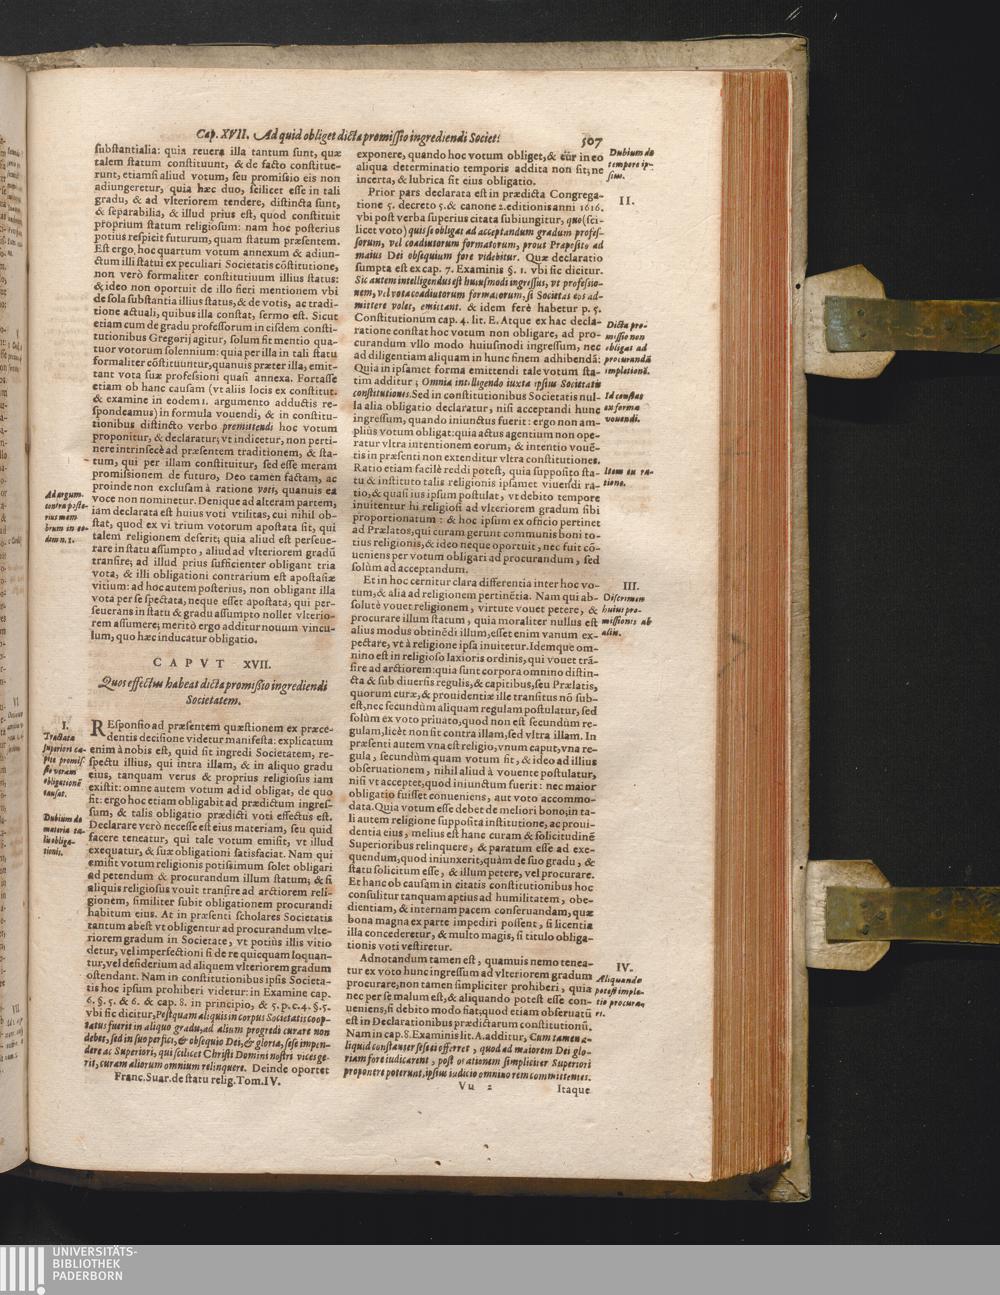 Cap. XVII. Ad quid obliget dicta promissio ingrediendi Societ: 507
substantialia: quia reuera illa tantum sunt, quæ
talem statum constituunt, & de facto constitue-
runt, etiamsi aliud votum, seu promissio eis non
adiungeretur, quia hæc duo, scilicet esse in tali
gradu, & ad vlteriorem tendere, distincta sunt,
& separabilia, & illud prius est, quod constituit
proprium statum religiosum: nam hoc posterius
potius respicit futurum, quam statum præsentem.
Est ergo hoc quartum votum annexum & adiun-
ctum illi statui ex peculiari Societatis cōstitutione,
non verò formaliter constitutiuum illius status:
& ideo non oportuit de illo fieri mentionem vbi
de sola substantia illius status, & de votis, ac tradi-
tione actuali, quibus illa constat, sermo est. Sicut
etiam cum de gradu professorum in eisdem consti-
tutionibus Gregorij agitur, solum fit mentio qua-
tuor votorum solennium: quia per illa in tali statu
formaliter cōstituuntur, quanuis præter illa, emit-
tant vota suæ professioni quasi annexa. Fortasse
etiam ob hanc causam (vt aliis locis ex constitut.
& examine in eodem 1. argumento adductis re-
spondeamus) in formula vouendi, & in constitu-
tionibus distincto verbo premittendi hoc votum
proponitur, & declaratur; vt indicetur, non perti-
nere intrinsecè ad præsentem traditionem, & sta-
tum, qui per illam constituitur, sed esse meram
promissionem de futuro, Deo tamen factam, ac
proinde non exclusam à ratione voti, quanuis ea
voce non nominetur. Denique ad alteram partem,
iam declarata est huius voti vtilitas, cui nihil ob-
stat, quod ex vi trium votorum apostata sit, qui
talem religionem deserit; quia aliud est perseue-
rare in statu assumpto, aliud ad vlteriorem gradū
transire; ad illud prius sufficienter obligant tria
vota, & illi obligationi contrarium est apostasiæ
vitium: ad hoc autem posterius, non obligant illa
vota per se spectata, neque esset apostata, qui per-
seuerans in statu & gradu assumpto nollet vlterio-
rem assumere; meritò ergo additur nouum vincu-
lum, quo hæc inducatur obligatio.
Ad argum.
contra poste-
rius mem
brum in eo-
dem n. 1.
CAPVT XVII.
Quos effectus habeat dicta promissio ingrediendi
Societatem.
I.
Tractata
superiori ca-
pite promis-
sio veram
obligationē
causat.
REsponsio ad præsentem quæstionem ex præce-
dentis decisione videtur manifesta: explicatum
enim à nobis est, quid sit ingredi Societatem, re-
spectu illius, qui intra illam, & in aliquo gradu
eius, tanquam verus & proprius religiosus iam
existit: omne autem votum ad id obligat, de quo
fit: ergo hoc etiam obligabit ad prædictum ingres-
sum, & talis obligatio prædicti voti effectus est.
Declarare verò necesse est eius materiam, seu quid
facere teneatur, qui tale votum emisit, vt illud
exequatur, & suæ obligationi satisfaciat. Nam qui
emisit votum religionis potissimum solet obligari
ad petendum & procurandum illum statum; & si
aliquis religiosus vouit transire ad arctiorem reli-
gionem, similiter subit obligationem procurandi
habitum eius. At in præsenti scholares Societatis
tantum abest vt obligentur ad procurandum vlte-
riorem gradum in Societate, vt potiùs illis vitio
detur, vel imperfectioni si de re quicquam loquan-
tur, vel desiderium ad aliquem vlteriorem gradum
ostendant. Nam in constitutionibus ipsis Societa-
tis hoc ipsum prohiberi videtur: in Examine cap.
6. §. 5. & 6. & cap. 8. in principio, & 5. p. c. 4. §. 5.
vbi sic dicitur, Postquam aliquis in corpus Societatis coop-
tatus fuerit in aliquo gradu, ad alium progredi curare non
debet, sed in suo perfici, & obsequio Dei, & gloria, sese impen-
dere ac Superiori, qui scilicet Christi Domini nostri vices ge-
rit, curam aliorum omnium relinquere. Deinde oportet
Dubium de
materia ta-
lis obliga-
tionis.
Franc. Suar. de statu relig. Tom. IV.
exponere, quando hoc votum obliget, & cùr in eo
aliqua determinatio temporis addita non sit; ne
incerta, & lubrica sit eius obligatio.
Dubium de
tempore ip-
sius.
II.
Prior pars declarata est in prædicta Congrega-
tione 5. decreto 5. & canone 2. editionis anni 1616.
vbi post verba superius citata subiungitur, quo (sci-
licet voto) quis se obligat ad acceptandum gradum profes-
sorum, vel coadiutorum formatorum, prout Præposito ad
maius Dei obsequium fore videbitur. Quæ declaratio
sumpta est ex cap. 7. Examinis §. 1. vbi sic dicitur.
Sic autem intelligendus est huiusmodi ingressus, vt professio-
nem, vel vota coadiutorum formatorum, si Societas eos ad-
mittere volet, emittant. & idem ferè habetur p. 5.
Constitutionum cap. 4. lit. E. Atque ex hac decla-
ratione constat hoc votum non obligare, ad pro-
curandum vllo modo huiusmodi ingressum, nec
ad diligentiam aliquam in hunc finem adhibendā:
Quia in ipsamet forma emittendi tale votum sta-
tim additur; Omnia intelligendo iuxta ipsius Societatis
constitutiones. Sed in constitutionibus Societatis nul-
la alia obligatio declaratur, nisi acceptandi hunc
ingressum, quando iniunctus fuerit: ergo non am-
plius votum obligat: quia actus agentium non ope-
ratur vltra intentionem eorum, & intentio vouē-
tis in præsenti non extenditur vltra constitutiones.
Ratio etiam facilè reddi potest, quia supposito sta-
tu & instituto talis religionis ipsamet viuendi ra-
tio, & quasi ius ipsum postulat, vt debito tempore
inuitentur hi religiosi ad vlteriorem gradum sibi
proportionatum: & hoc ipsum ex officio pertinet
ad Prælatos, qui curam gerunt communis boni to-
tius religionis, & ideo neque oportuit, nec fuit cō-
ueniens per votum obligari ad procurandum, sed
solùm ad acceptandum.
Dicta pro-
missio non
obligat ad
procurandā
impletionē.
Id constat
ex forma
vouendi.
Item ex ra-
tione.
III.
Discrimen
huius pro-
missionis ab
aliis.
Et in hoc cernitur clara differentia inter hoc vo-
tum, & alia ad religionem pertinētia. Nam qui ab-
solutè vouet religionem, virtute vouet petere, &
procurare illum statum, quia moraliter nullus est
alius modus obtinēdi illum, esset enim vanum ex-
pectare, vt à religione ipsa inuitetur. Idemque om-
nino est in religioso laxioris ordinis, qui vouet trā-
sire ad arctiorem: quia sunt corpora omnino distin-
cta & sub diuersis regulis, & capitibus, seu Prælatis,
quorum curæ, & prouidentiæ ille transitus nō sub-
est, nec secundùm aliquam regulam postulatur, sed
solùm ex voto priuato, quod non est secundùm re-
gulam, licèt non sit contra illam, sed vltra illam. In
præsenti autem vna est religio, vnum caput, vna re-
gula, secundùm quam votum fit, & ideo ad illius
obseruationem, nihil aliud à vouente postulatur,
nisi vt acceptet, quod iniunctum fuerit: nec maior
obligatio fuisset conueniens, aut voto accommo-
data. Quia votum esse debet de meliori bono; in ta-
li autem religione supposita institutione, ac proui-
dentia eius, melius est hanc curam & solicitudinē
Superioribus relinquere, & paratum esse ad exe-
quendum, quod iniunxerit, quàm de suo gradu, &
statu solicitum esse, & illum petere, vel procurare.
Et hanc ob causam in citatis constitutionibus hoc
consulitur tanquam aptius ad humilitatem, obe-
dientiam, & internam pacem conseruandam, quæ
bona magna ex parte impediri possent, si licentia
illa concederetur, & multo magis, si titulo obliga-
tionis voti vestiretur.
IV.
Aliquando
potest imple-
tio procura-
ri.
Adnotandum tamen est, quamuis nemo tenea-
tur ex voto hunc ingressum ad vlteriorem gradum
procurare, non tamen simpliciter prohiberi, quia
nec per se malum est, & aliquando potest esse con-
ueniens, si debito modo fiat; quod etiam obseruatū
est in Declarationibus prædictarum constitutionū.
Nam in cap. 8. Examinis lit. A. additur, Cum tamen a-
liquid constanter sese ei offerret, quod ad maiorem Dei glo-
riam fore iudicarent, post orationem simpliciter Superiori
proponere poterunt, ipsius iudicio omnino rem committentes.
Vu 2 Itaque
UNIVERSITÄTS-
BIBLIOTHEK
PADERBORN